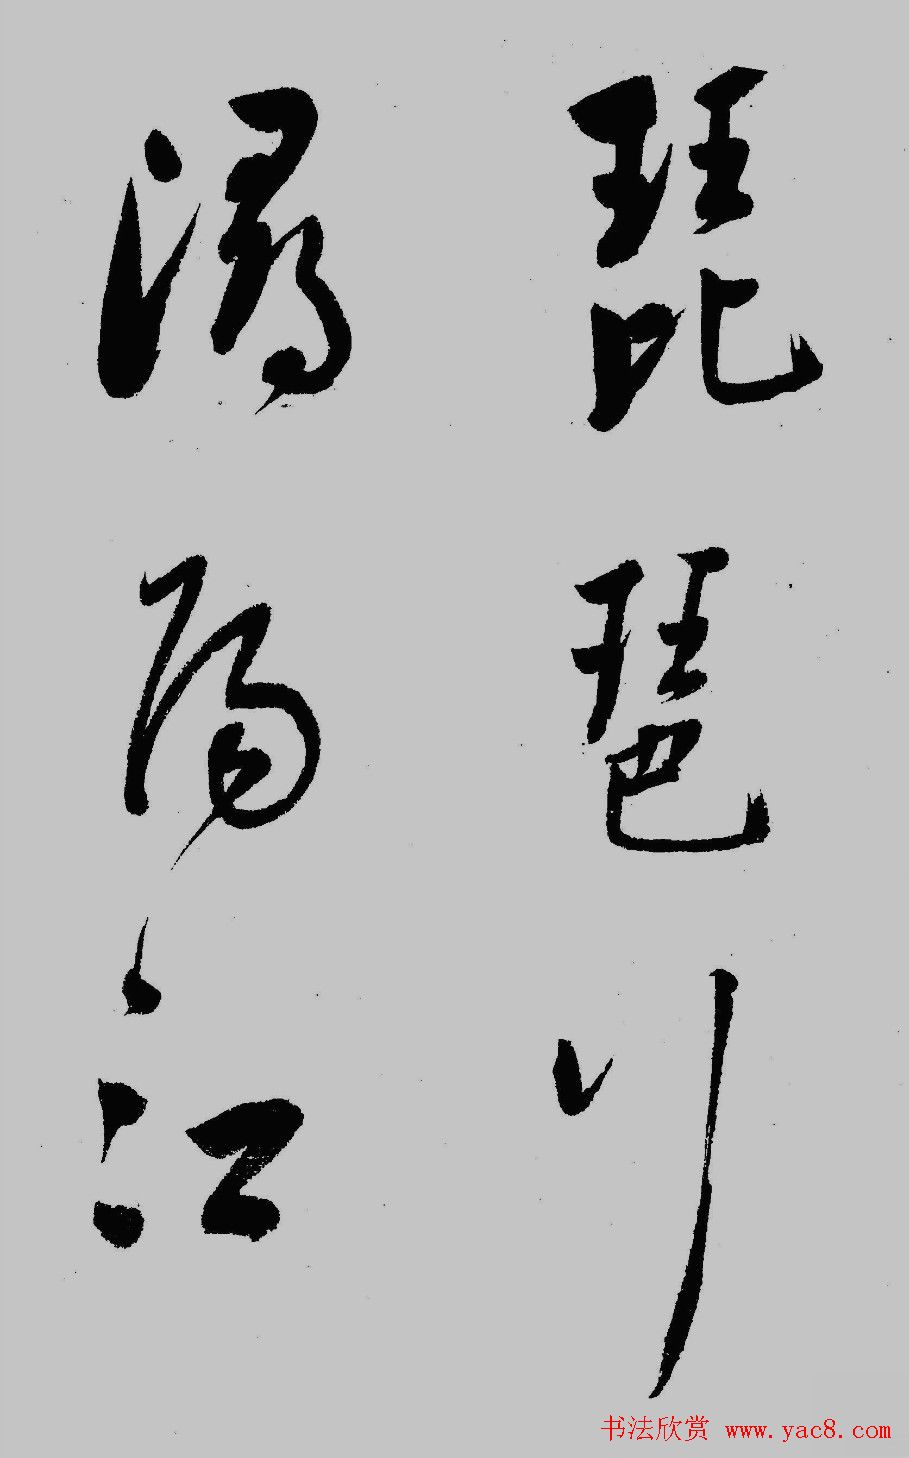 琵琶行
潯陽江
书法欣赏 www.yac8.com